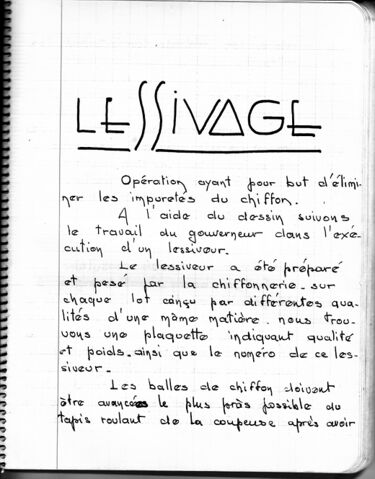 LESSIVAGE
Opération ayant pour but d'élimi-
ner les impuretés du chiffon.
A l'aide du dessin suivons
le travail du gouverneur dans l'exé-
cution d'un lessiveur.
Le lessiveur a été préparé
et pesé par la chiffonnerie. sur
chaque lot conçu par différentes qua-
lités d'une même matière. nous trou-
vons une plaquette indiquant qualité
et poids. ainsi que le numéro de ce les-
siveur.
Les balles de chiffon doivent
être avancées le plus près possible du
tapis roulant de la coupeuse après avoir